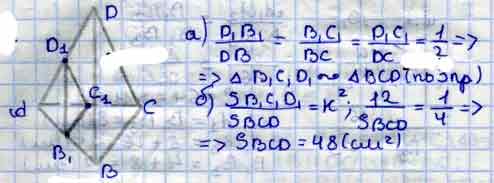 D
D₁
C₁
𝒶
C
B₁
B
а) D₁B₁/DB = B₁C₁/BC = D₁C₁/DC = 1/2 =>
=> △ B₁C₁D₁ ∾ △BCD (по 3 пр)
б) SB₁C₁D₁/SBCD = K²; 12/SBCD = 1/4 =>
=> SBCD = 48 (см²)